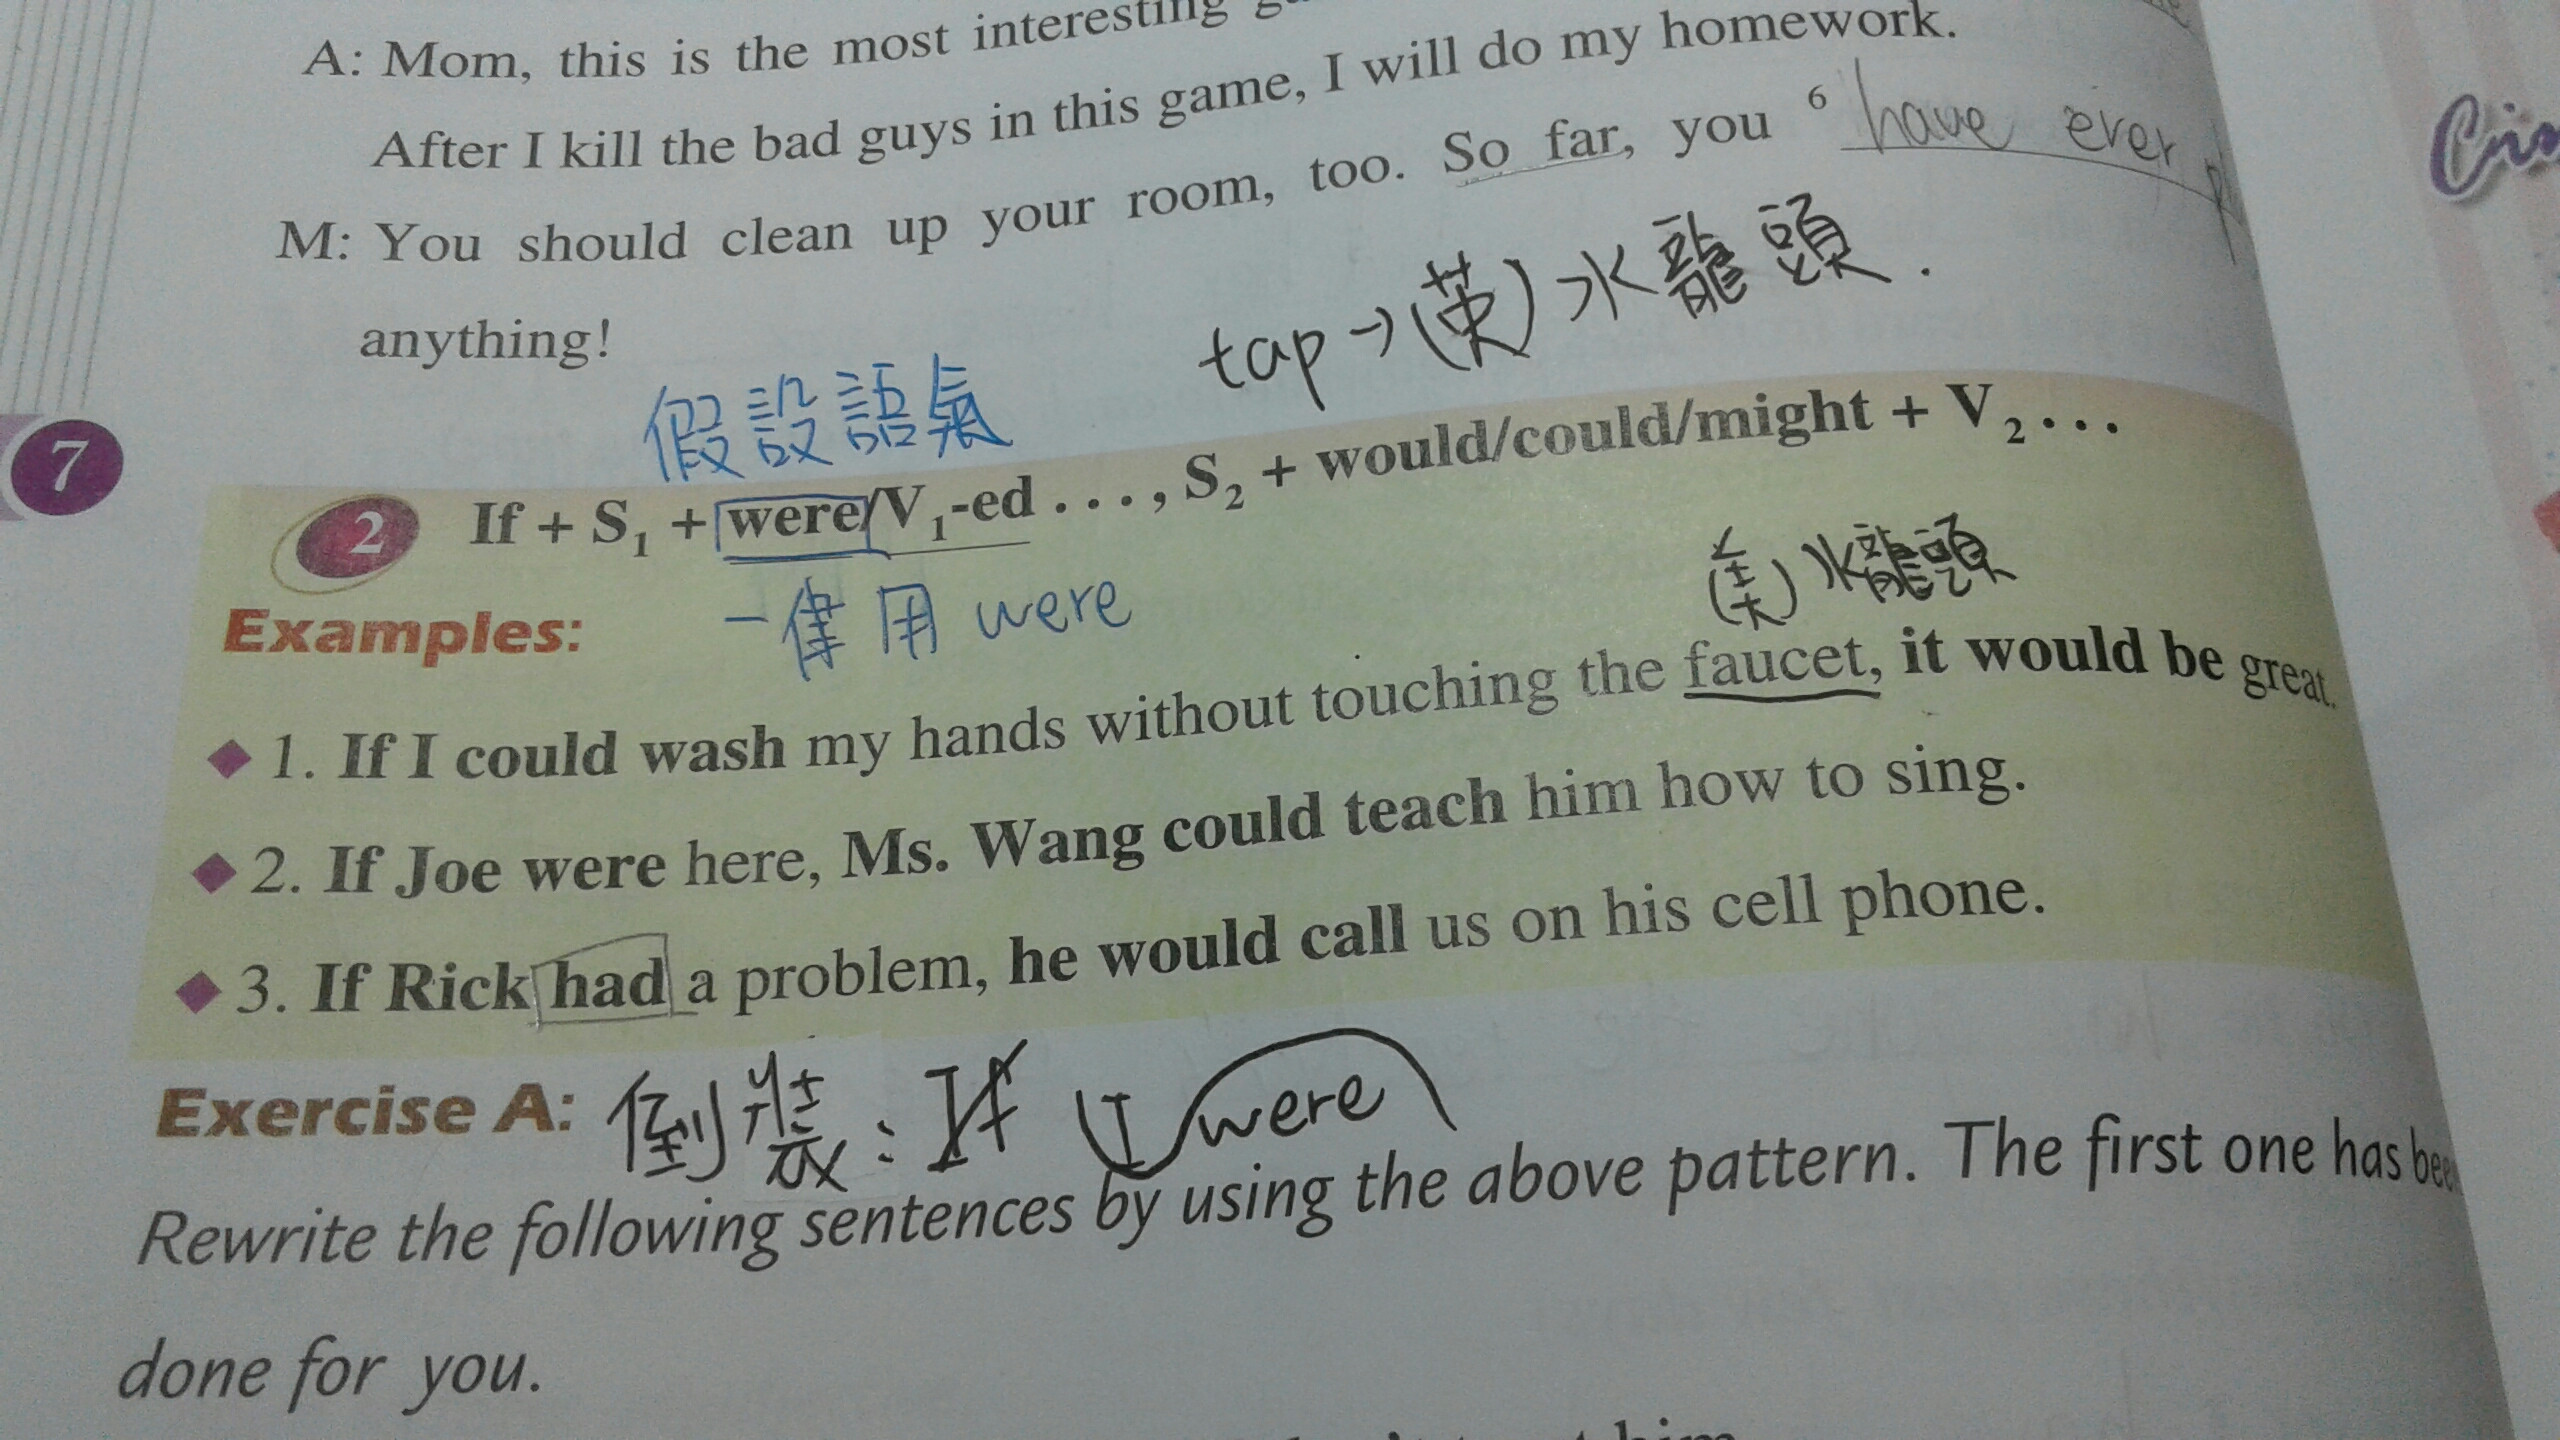 A: Mom, this is the most interesting
After I kill the bad guys in this game, I will do my homework.
M: You should clean up your room, too. So far, you 6 have ever
anything!
tap→(英)水龍頭.
假設語氣
7
2 If + S1 + were/V1-ed . . . , S2 + would/could/might + V2 . . .
一律用 were
(美)水龍頭
Examples:
◆ 1. If I could wash my hands without touching the faucet, it would be great.
◆ 2. If Joe were here, Ms. Wang could teach him how to sing.
◆ 3. If Rick had a problem, he would call us on his cell phone.
Exercise A: 倒裝: If I were
Rewrite the following sentences by using the above pattern. The first one has been
done for you.
him